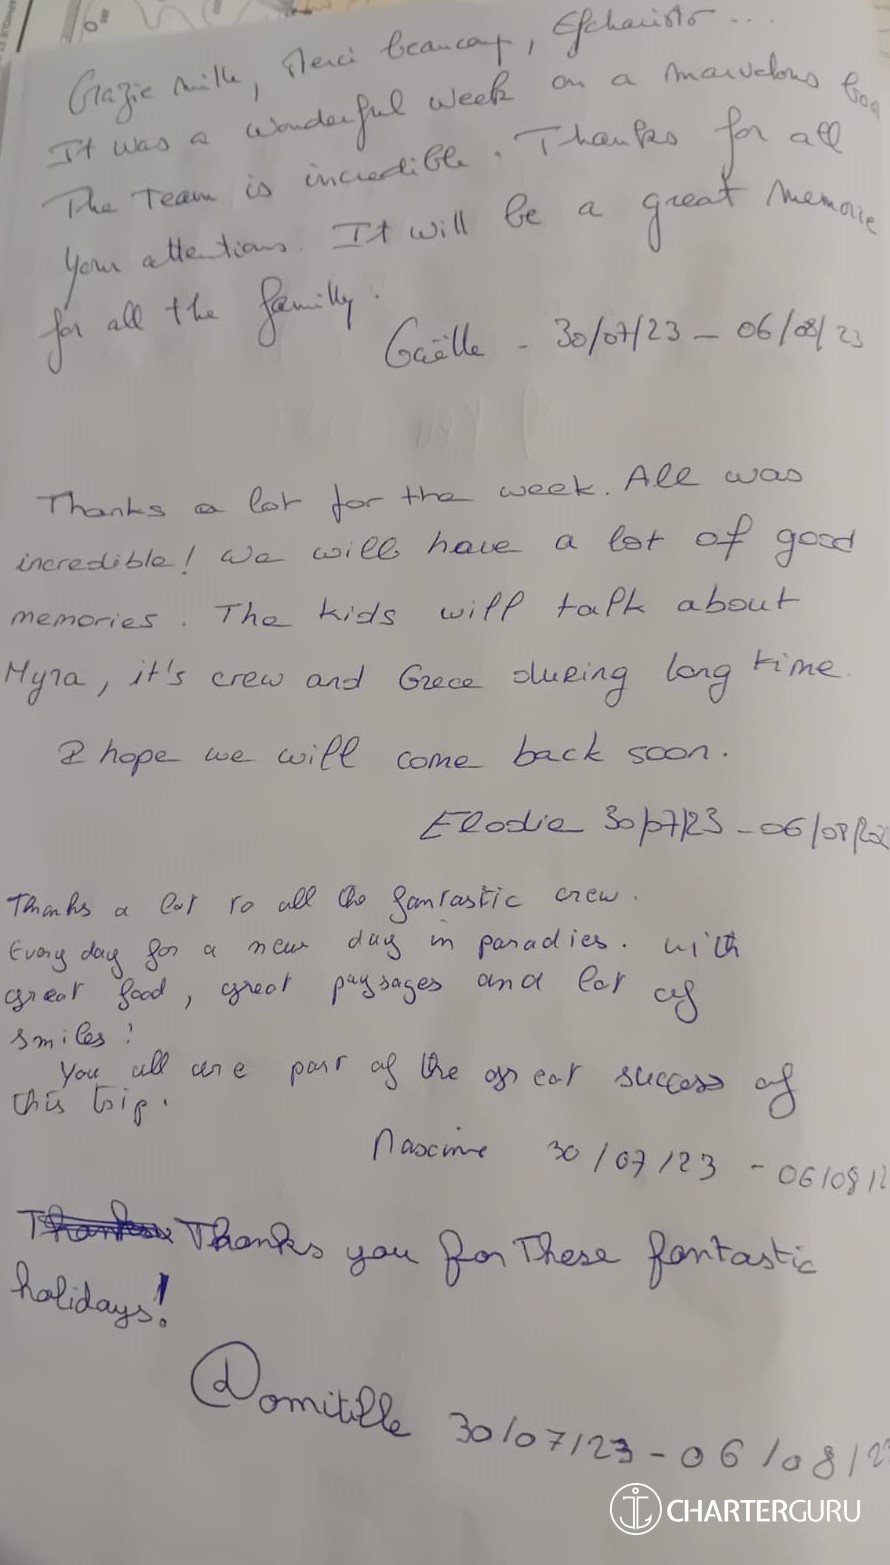 Grazie mille, Merci beaucoup, Efcharisto...
It was a wonderful week on a marvelous boa
The Team is incredible. Thanks for all
your attentions. It will be a great memorie
for all the familly.
Gaëlle - 30/07/23 - 06/08/23
Thanks a lot for the week. All was
incredible! We will have a lot of good
memories. The kids will talk about
Myra, it's crew and Grece during long time.
I hope we will come back soon.
Elodie 30/07/23 - 06/08/202
Thanks a lot to all the fantastic crew.
Every day for a new day in paradies. With
great food, great paysages and lot of
smiles!
You all are part of the great success of
this trip.
Maxime 30/07/23 - 06/08/2
Thanks Thanks you for These fantastic
holidays!
Domitille 30/07/23 - 06/08/23
CHARTERGURU